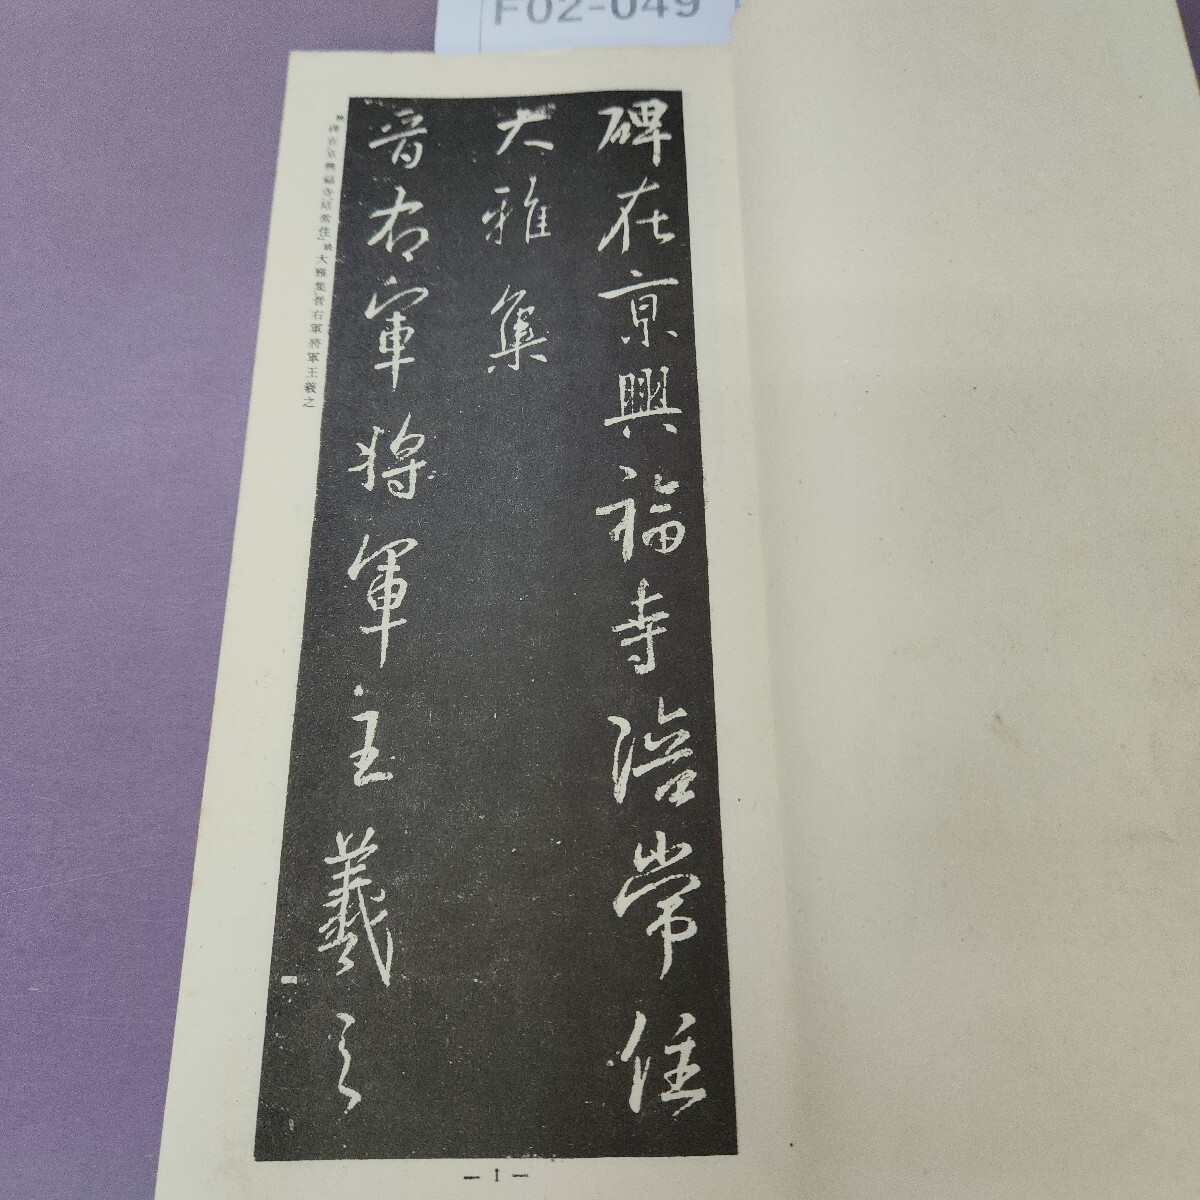 F02-049
碑在京興福寺陪常住
大雅集
晋右軍將軍王羲之
碑在京興福寺陪常住 大雅集晋右軍将軍王羲之
— 1 —